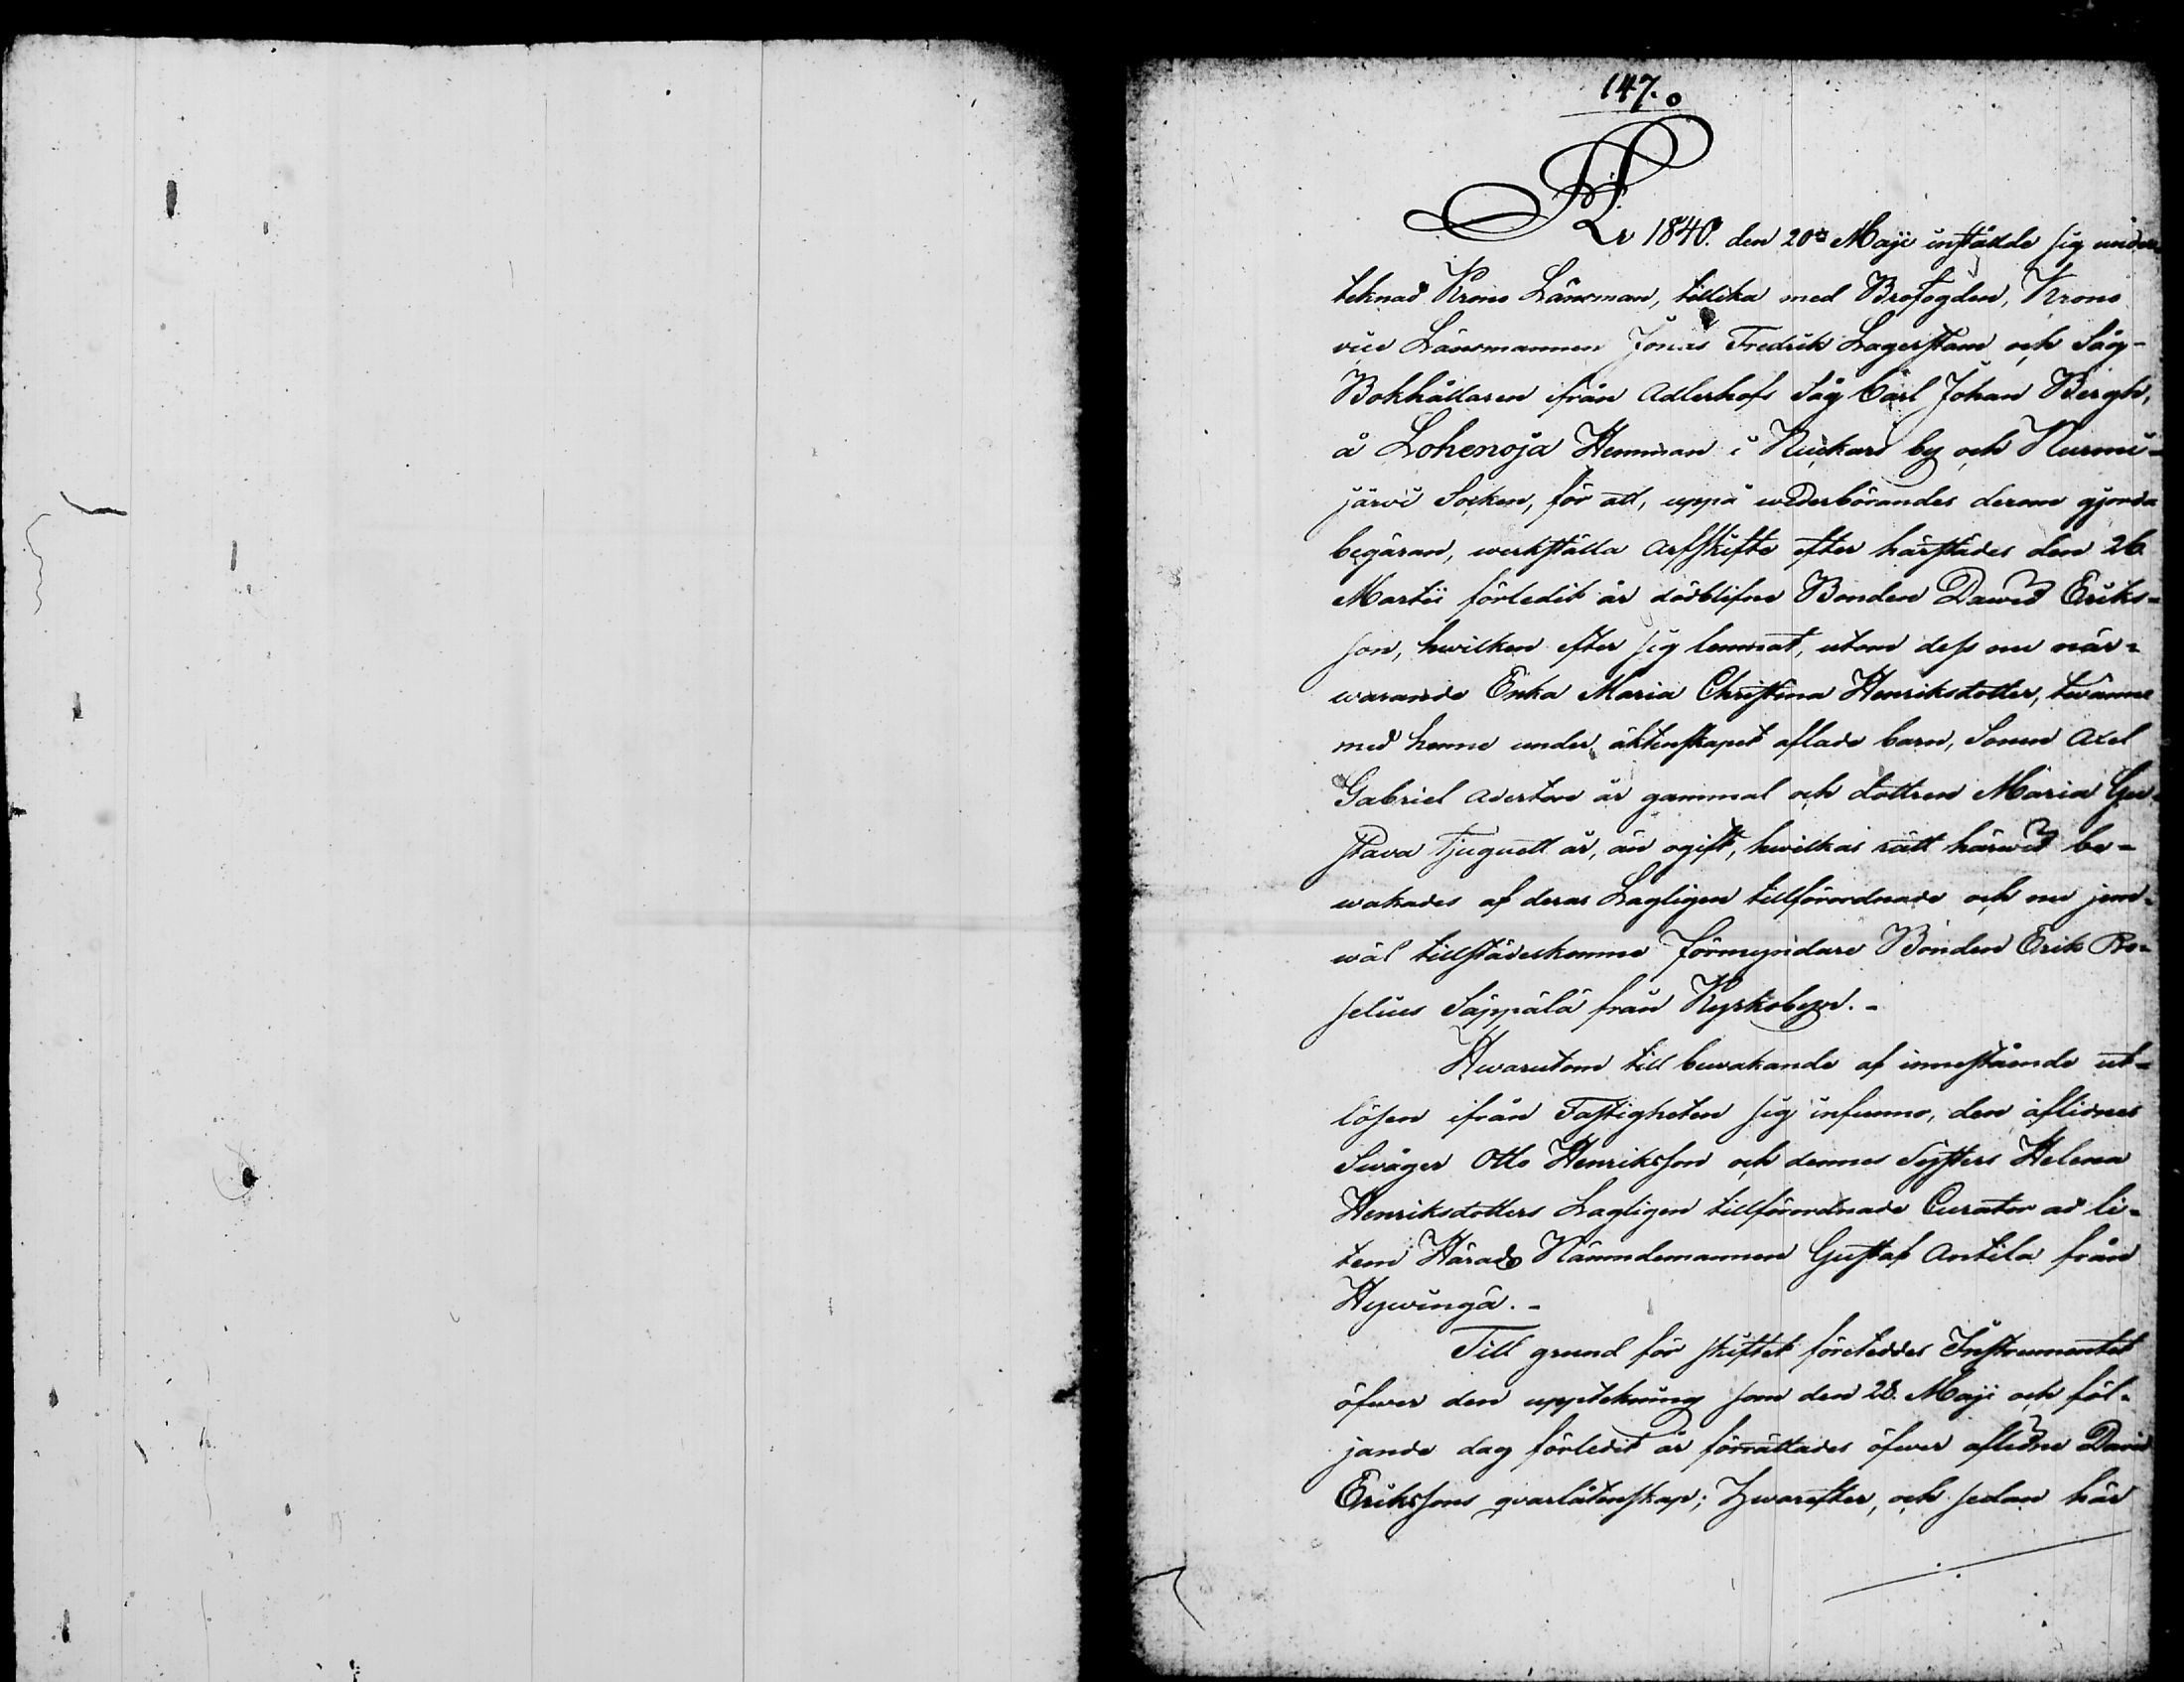 147.
År 1840. den 20de Maji instälde sig under-
teknad Krono Länsman, tillika med Brofogden, Krono
vice Länsmannen Jonas Fredrik Lagerstam och Såg-
Bokhållaren ifrån Adlerhofs Såg Carl Johan Bergh,
å Lohenoja Hemman i Nuckari by och Nurmi-
järvi Socken, för att, uppå wederbörandes derom gjorda
begäran, werkställa arfskifte efter härstädes den 26.
Martii förledit år dödblifne Bonden Dawid Eriks-
son, hwilken efter sig lemnat, utom dess nu när-
warande Enka Maria Christina Henriksdotter, twänne
med henne under äktenskapet aflade barn, Sonen Axel
Gabriel Aderton år gammal och dottren Maria Gu-
stava Tjuguett år, än ogift, hwilkas rätt härwid be-
wakades af deras Lagligen tillförordnade och nu jem-
wäl tillstädeskomne Förmyndare Bonden Erik Ro-
selius Säppälä från Kyrkobyn.-
Hwarutom till bewakande af innestående ut-
lösen ifrån Fastigheten sig infunno, den aflidnes
Swåger Otto Henriksson och dennes Systers Helena
Henriksdotters Lagligen tillförordnade Curator ad li-
tem Härads Nämndemannen Gustaf Antila från
Hywingä.-
Till grund för skiftet företeddes Instrumentet
öfwer den uppteknning som den 28. Maji och föl-
jande dag förledit år förrättades öfwer aflidne David
Erikssons qvarlåtenskap; Hwarefter, och sedan här